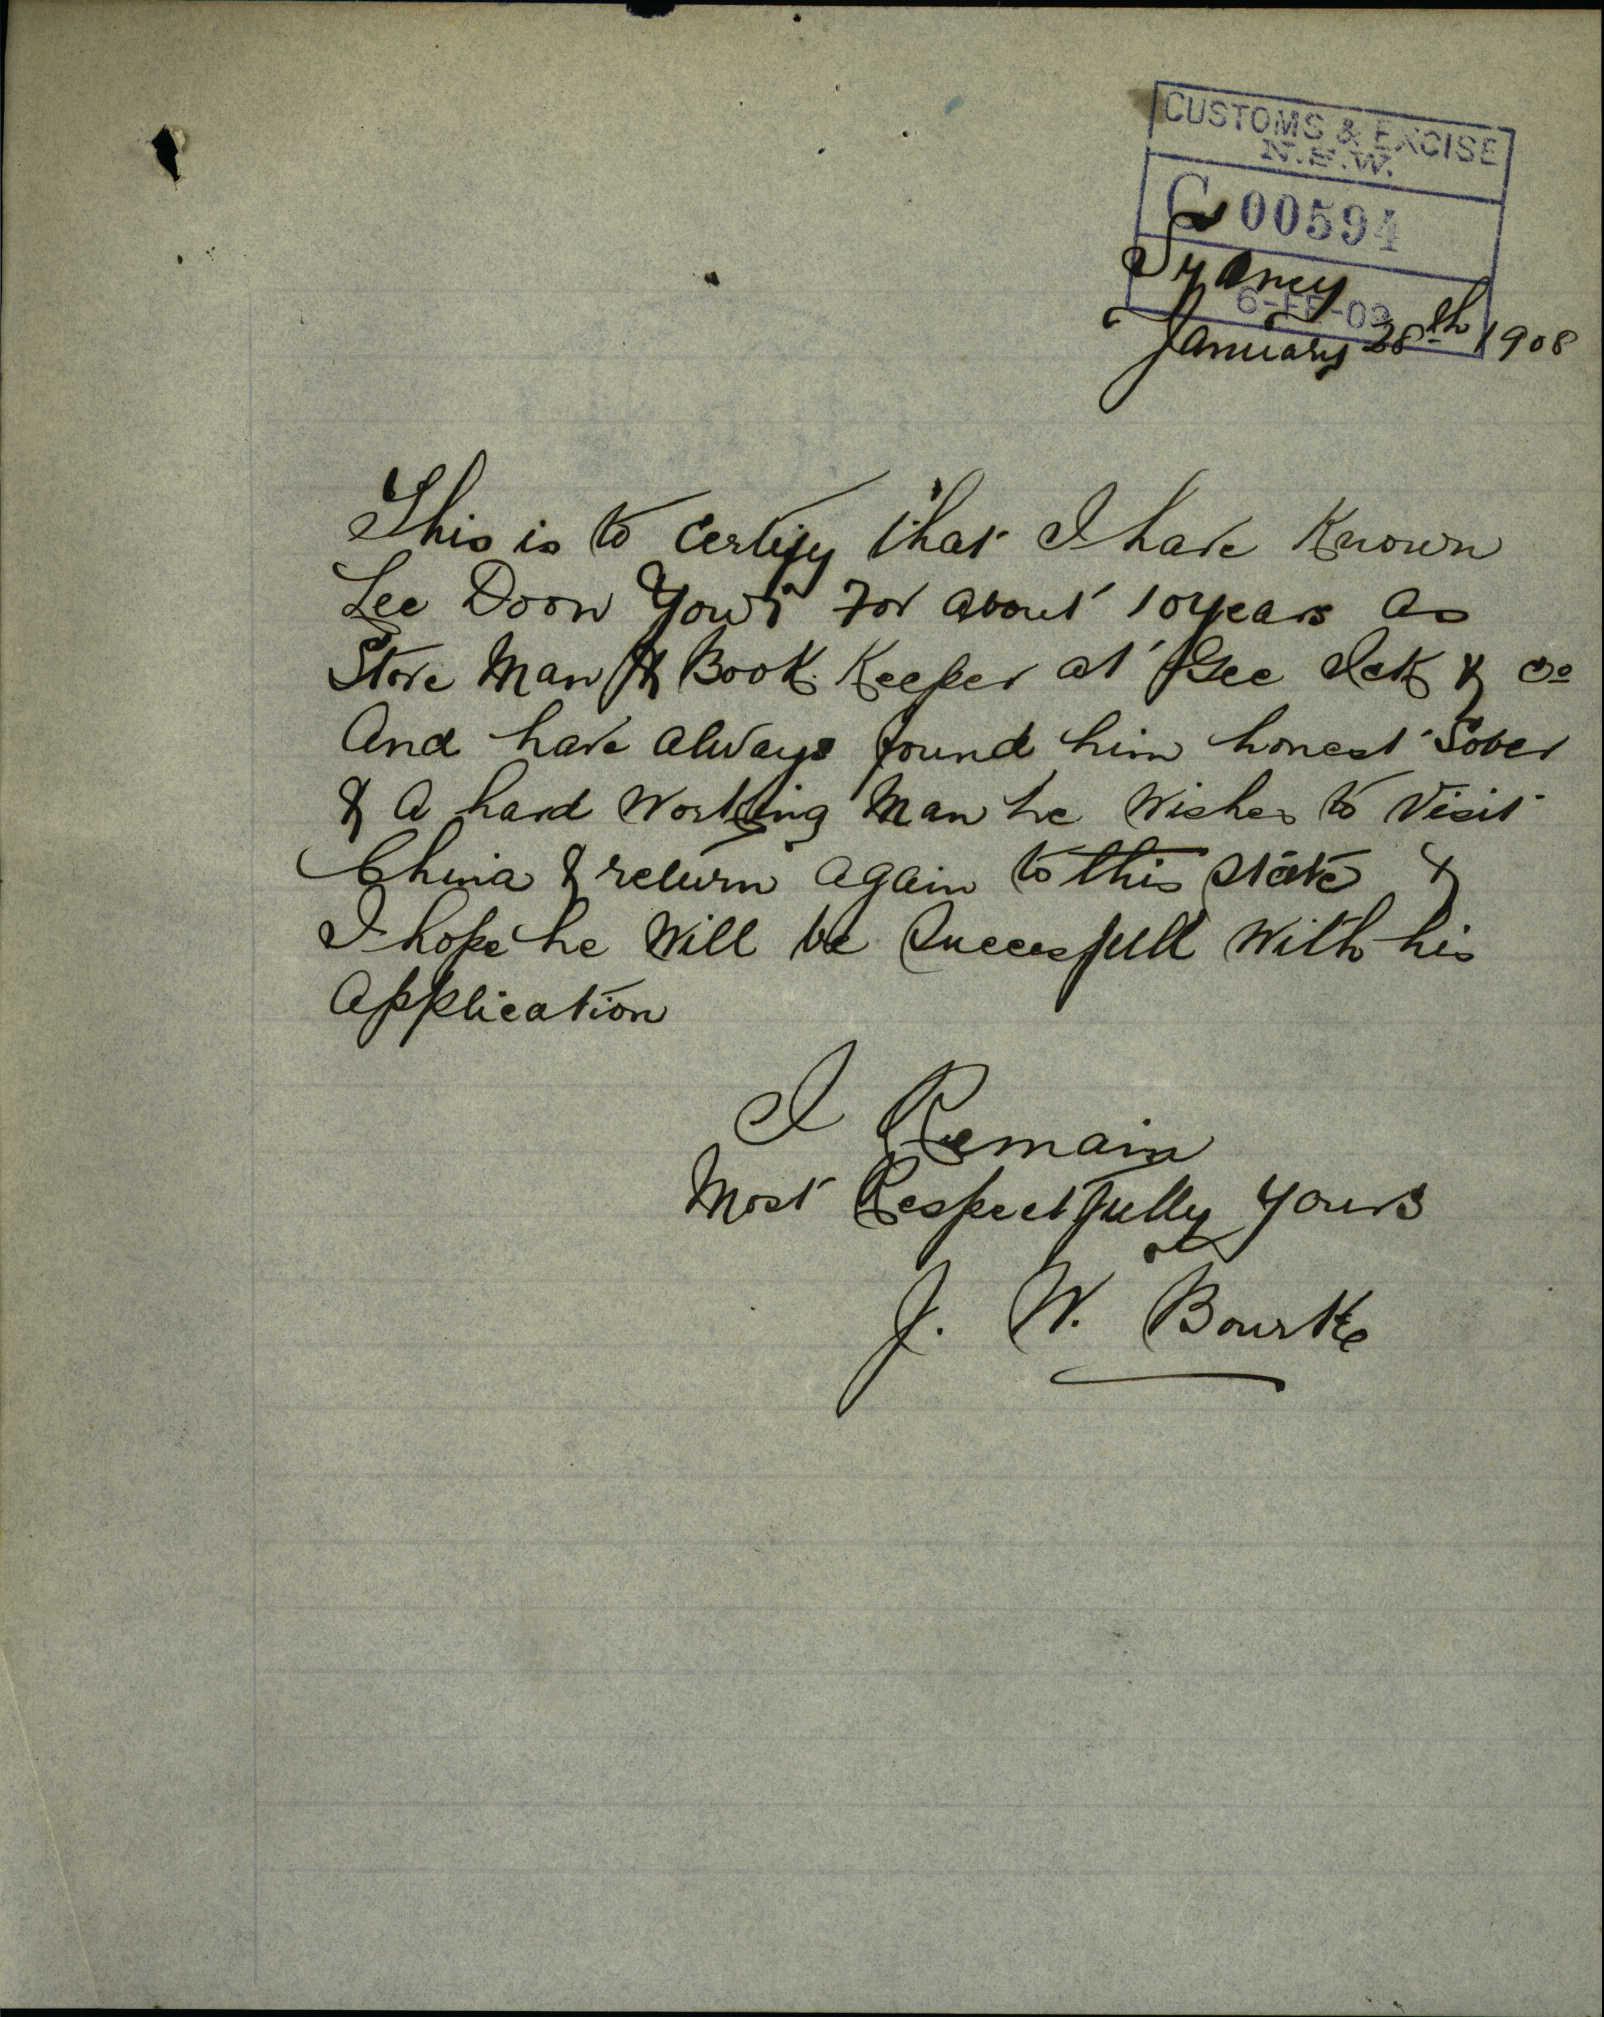 CUSTOMS & EXCISE
N.S.W.
C 00594
Sydney
6-FE-08
January 28th 1908
This is to certify that I have Known
Lee Doon for about 10 years as
Store Man & Book Keeper at Gee Ick & Co
And have always found him honest Sober
& A hard Working Man he Wishes to Visit
China & return again to this state &
I hope he Will be Succesfull With his
Application
I Remain
Most Respectfully yours
J. W. Bourke